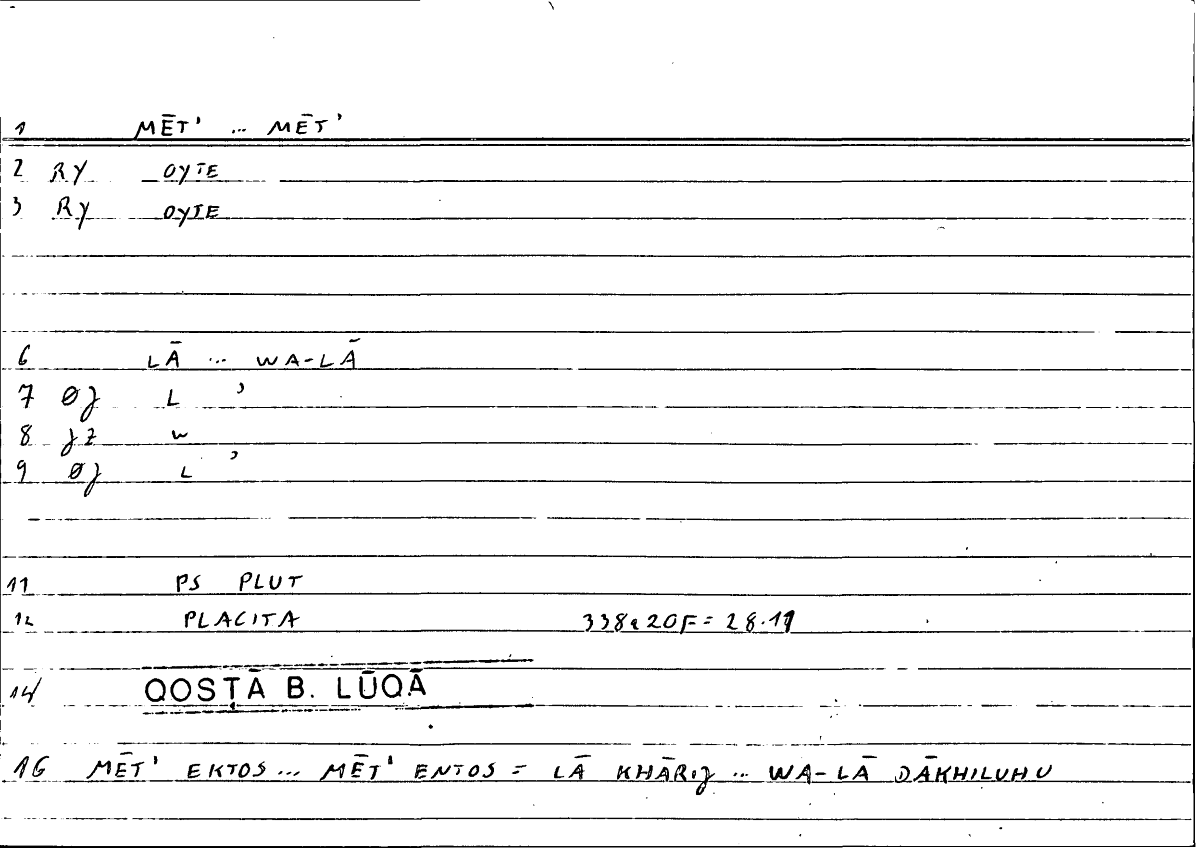 1 MĒT' ... MĒT'
2 RY OYTE
3 RY OYTE
6 LĀ ... WA-LĀ
7 ØJ L ʾ
8 JZ W
9 ØJ L ʾ
11 PS PLUT
12 PLACITA 338a20F = 28.11
14 QOSṬĀ B. LŪQĀ
16 MĒT' EKTOS... MĒT' ENTOS = LĀ KHĀRIJ ... WA-LĀ DĀKHILUHU